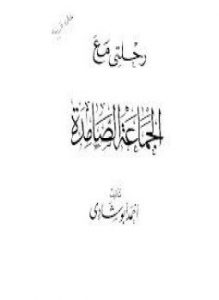 رحلتي مع
الجماعة الصامدة
تأليف
احمد أبو شادي